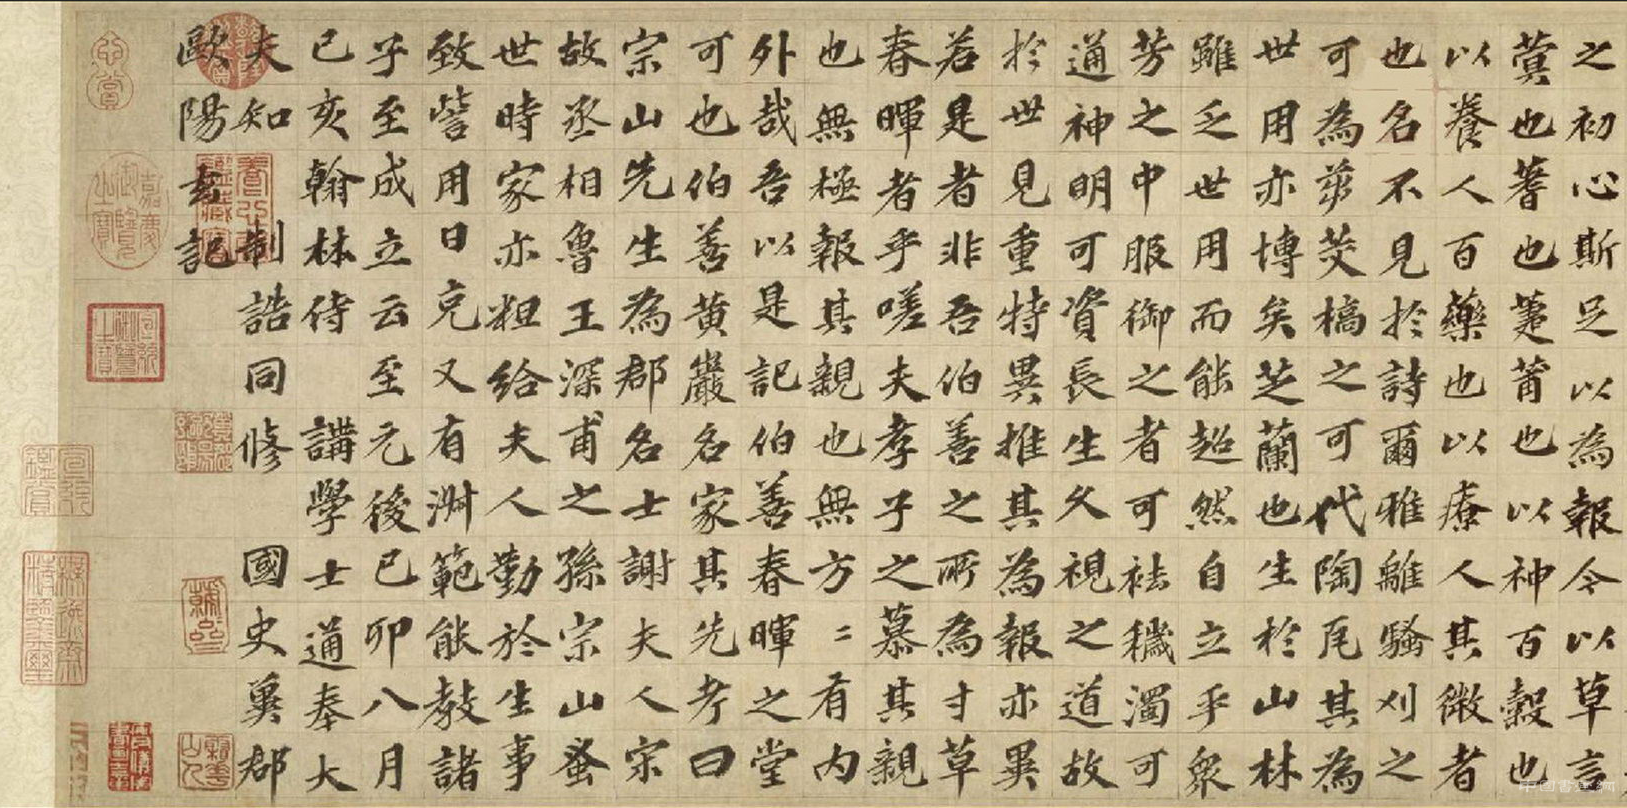 之初心斯足以為報令以草言
蓂也蓍也萐莆也以神百穀也
以養人百藥也以療人其微者
也名不見於詩爾雅離騷刈之
可為茭槁之可代陶瓦其為
世用亦博矣芝蘭也生於山林
雖乏世用而能超然自立乎衆
芳之中服御之者可袪穢濁可
通神明可資長生久視之道故
於世見重特異推其為報亦異
若是者非吾伯善之所為寸草
春暉者乎嗟夫孝子之慕其親
也無極報其親也無方〻有内
外哉吾以是記伯善春暉之堂
可也伯善黄巖名家其先考曰
宗山先生為郡名士謝夫人宗
故丞相魯王深甫之孫宗山蚤
世時家亦粗給夫人勤於生事
致訾用日克又有淑範能教諸
子至成立云至元後己卯八月
己亥翰林侍講學士通奉大
夫知制誥同修國史冀郡
歐陽玄記
心賞
嘉慶御覽之寶
宣統御覽之寶